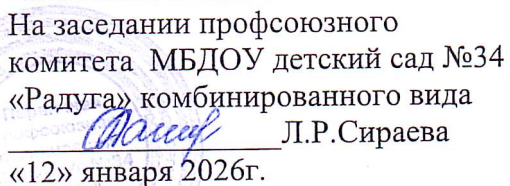 На заседании профсоюзного
комитета МБДОУ детский сад №34
«Радуга» комбинированного вида
____________________Л.Р.Сираева
«12» января 2026г.